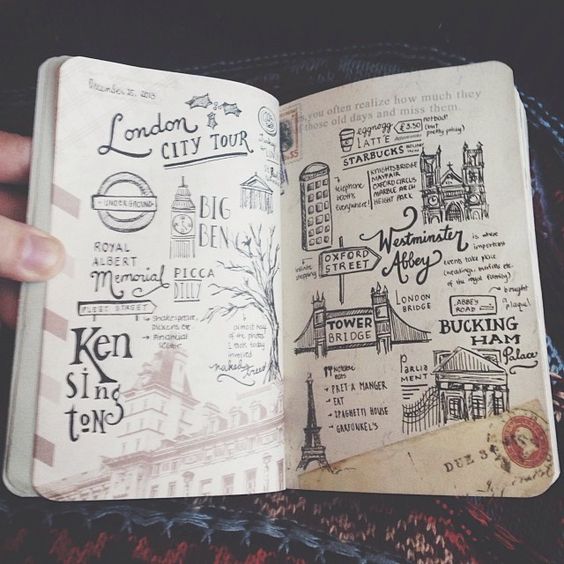 December 25, 2013
London
CITY TOUR
UNDERGROUND
BIG
BEN
ROYAL
ALBERT
Memorial
PICCA
DILLY
FLEET STREET
Shakespeare,
dickens etc
→ financial
almost any of
the photos
I took today
involved
naked trees
Kensington
, you often realize how much they
those old days and miss them.
eggnogg
LATTE
£3.50
not bad!
(but
pretty pricey)
STARBUCKS
telephone
booths
everywhere!
KNIGHTSBRIDGE
MAYFAIR
OXFORD CIRCUS
MARBLE ARCH
OXFORD
STREET
infinite
shopping
Westminster
Abbey
is where
important
events take place
of the royal family)
LONDON
BRIDGE
ABBEY
ROAD
bought
plaque!
TOWER
BRIDGE
BUCKING
HAM
Palace
PARLIA
MENT
→ PRET A MANGER
→ EAT
→ SPAGHETTI HOUSE
→ GARFUNKEL'S
DUE 3